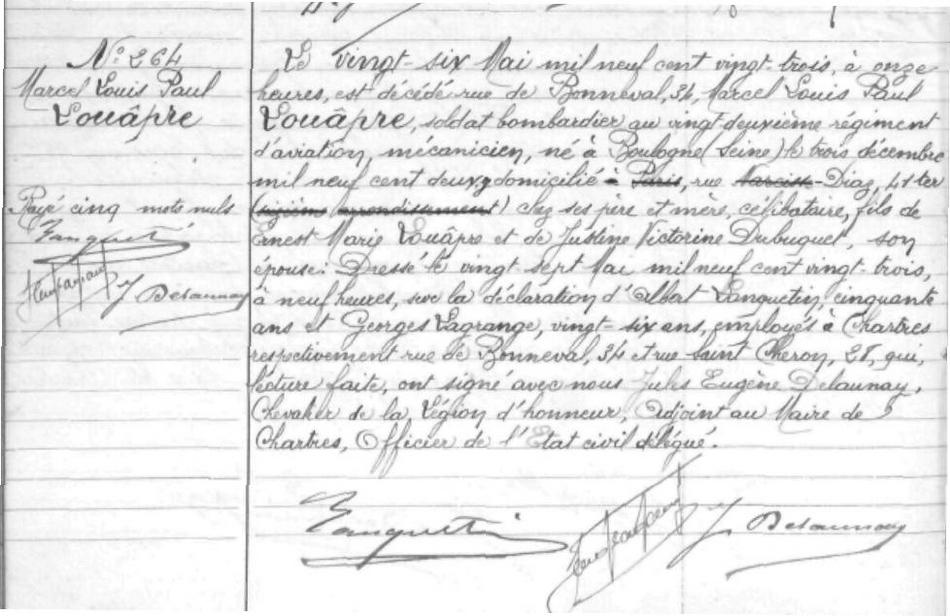 N° 264
Marcel Louis Paul
Louâpre
Rayé cinq mots nuls
Lanquetin
J Delaunay
Le vingt-six Mai mil neuf cent vingt-trois, à onze
heures, est décédé rue de Bonneval, 34, Marcel Louis Paul
Louâpre, soldat bombardier au vingt-deuxième régiment
d'aviation, mécanicien, né à Boulogne (Seine) le trois décembre
mil neuf cent deux, domicilié à Paris, rue Narcisse-Diaz, 41 ter
(seizième arrondissement) chez ses père et mère, célibataire, fils de
Ernest Marie Louâpre et de Justine Victorine Dubuquet, son
épouse. Dressé le vingt sept Mai mil neuf cent vingt-trois,
à neuf heures, sur la déclaration d'Albert Lanquetin, cinquante
ans et Georges Lagrange, vingt-six ans, employés à Chartres
respectivement rue de Bonneval, 34 et rue Saint Cheron, 28, qui,
lecture faite, ont signé avec nous Jules Eugène Delaunay,
Chevalier de la Légion d'honneur, Adjoint au Maire de
Chartres, Officier de l'Etat civil délégué.
Lanquetin
J Delaunay